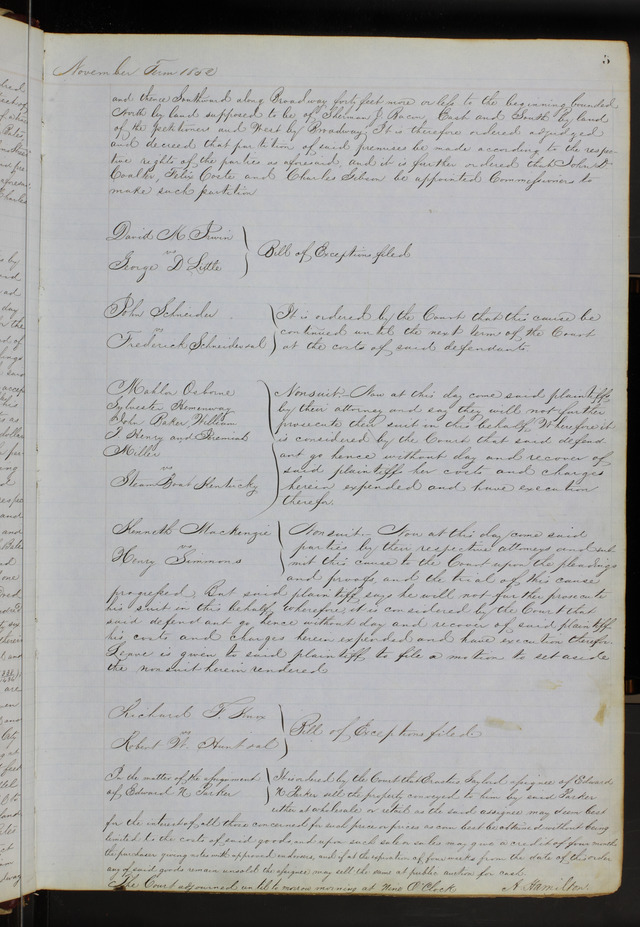 5
November Term 1852
and thence Southward along Broadway forty feet more or less to the beginning bounded
North by land supposed to be of Sherman J. Bacon, East and South by land
of the Petitioners and West by Broadway, It is therefore ordered adjudged
and decreed that partition of said premises be made according to the respec-
tive rights of the parties as aforesaid, and it is further ordered that John D
Coalter, Felix Coste and Charles Gibson be appointed Commissioners to
make such partition
David M Irwin
vs
George D Little
Bill of Exceptions filed
John Schneider
vs
Frederick Schneider et al
It is ordered by the Court that this cause be
continued until the next term of the Court
at the costs of said defendants.
Mahlon Osborne
Sylvester Hemenway
John Baker William
T Henry and Jeremiah
Miller
vs
Steam Boat Kentucky
Nonsuit – Now at this day come said plaintiffs
by their attorney and say they will not further
prosecute their suit in this behalf, Wherefore it
is considered by the Court that said defend
ant go hence without day and recover of
said plaintiffs her costs and charges
herein expended and have execution
therefor.
Kenneth Mackenzie
vs
Henry Simmons
Nonsuit – Now at this day come said
parties by their respective attorneys and sub
mit this cause to the Court upon the pleadings
and proofs and the trial of this cause
progressed, But said plaintiff says he will not further prosecute
his suit in this behalf, wherefore it is considered by the Court that
said defendant go hence without day and recover of said plaintiff
his costs and charges herein expended and have execution therefor
Leave is given to said plaintiff to file a motion to set aside
the nonsuit herein rendered
Richard F.
vs
Robert W. Hunt et al
Bill of Exceptions filed
In the matter of the assignment
of Edward N Parker
It is ordered by the Court that Taylord assignee of Edward
N Parker sell the property conveyed to him by said Parker
either at wholesale or retail as the said assignee may deem best
for the interest of all those concerned for such price or prices as can best be obtained without being
limited to the costs of said goods and upon such sale or sales may give a credit of four months
the purchaser giving notes with approved endorser, and if at the expiration of four weeks from the date of this order
any of said goods remain unsold the assignee may sell the same at public auction for cash.
The Court adjourned until to morrow morning at Nine O'Clock
A Hamilton